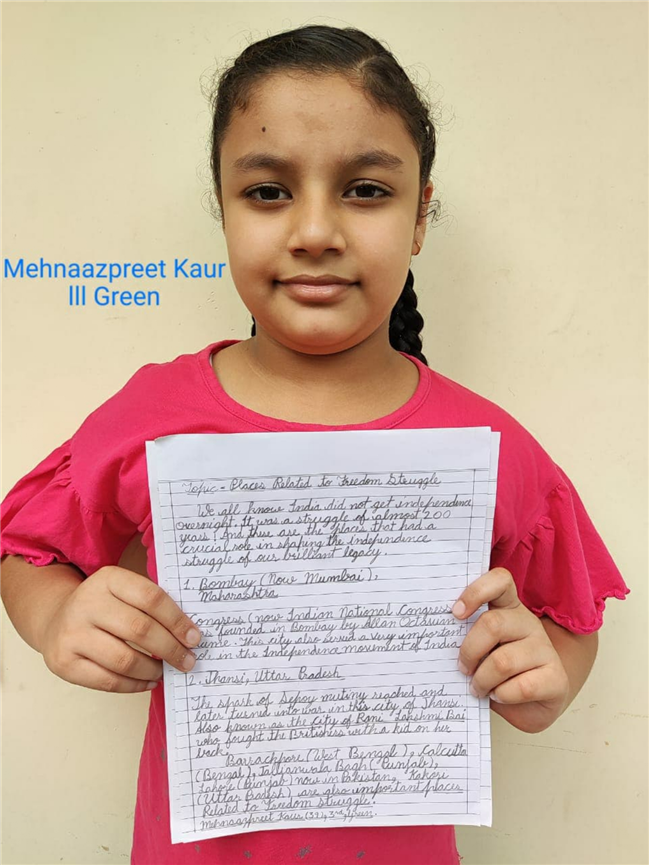 Mehnaazpreet Kaur
III Green
Topic - Places Related To Freedom Struggle
We all know India did not get independence
overnight. It was a struggle of almost 200
years! And these are the places that had a
crucial role in shaping the Independence
struggle of our brilliant legacy.
1. Bombay (Now Mumbai),
Maharashtra
Congress (now Indian National Congress
founded in Bombay by Allan Octavian
Hume. This city also served a very important
role in the Independence movement of India
2. Jhansi, Uttar Pradesh
The spark of Sepoy mutiny reached and
later turned into war in this city of Jhansi
Also known as the city of Rani Lakshmi Bai
who fought the Britishers with a kid on her
back.
Barrackpore (West Bengal), Calcutta
(Bengal), Jallianwala Bagh (Punjab),
Lahore (Punjab) now in Pakistan, Kakori
(Uttar Pradesh) are also important places
Related to Freedom struggle.
Mehnaazpreet Kaur (3914) 3rd, Green.